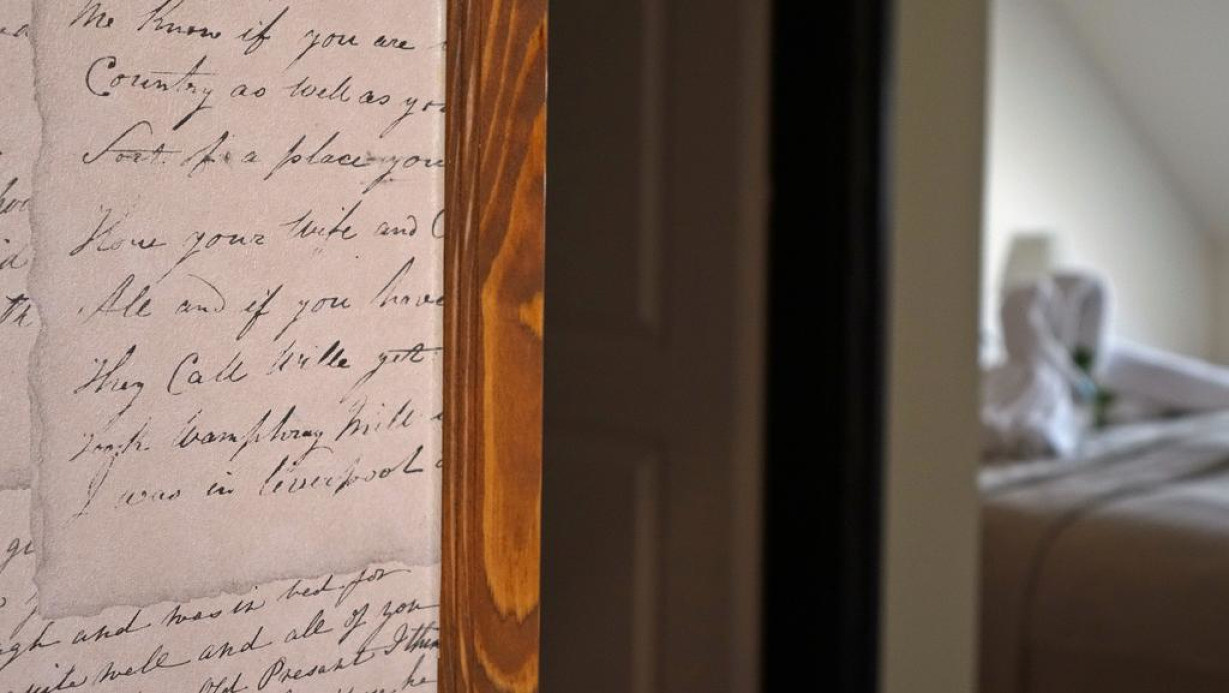 me know if you are
Country as well as you
Sort of a place you
How your wife and C
Ale and if you have
They Call Wille yet
Wamphray Mill
I was in liverpool a
th
gh and was in bed for
quite well and all of you
Old Presant I thin
he